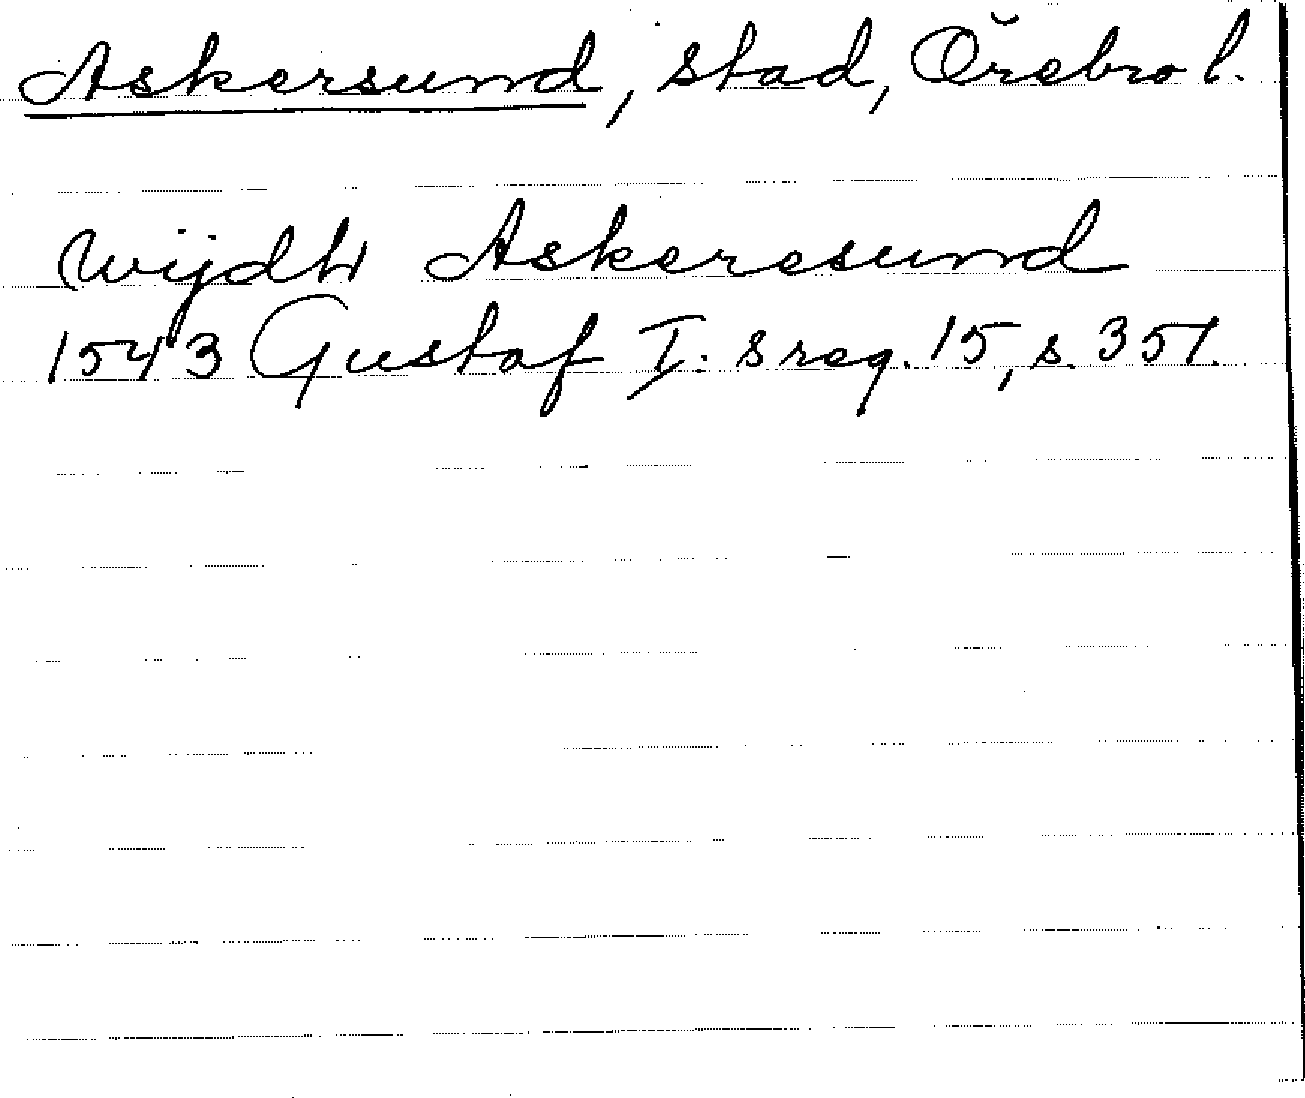 Askersund, stad, Örebro l.
wijdh Askeresund
1543 Gustaf I:s reg. 15, s. 351.